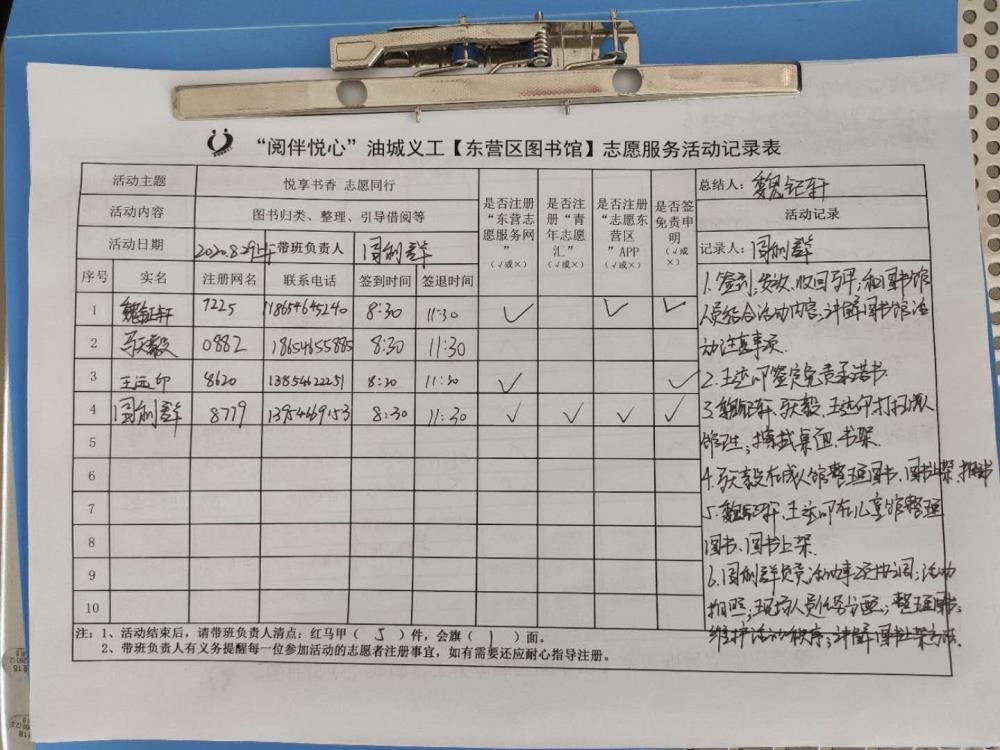 “阅伴悦心”油城义工【东营区图书馆】志愿服务活动记录表
活动主题 悦享书香 志愿同行
活动内容 图书归类、整理、引导借阅等
活动日期 2020.8.29上午 带班负责人 周利群
序号 实名 注册网名 联系电话 签到时间 签退时间
是否注册“东营志愿服务网”(√或×)
是否注册“青年志愿汇”(√或×)
是否注册“志愿东营区”APP(√或×)
是否签免责申明(√或×)
1 魏钲轩 7225 18654645240 8:30 11:30 √ √ √
2 毅 0882 18654655885 8:30 11:30
3 王运印 8620 13854622251 8:30 11:30 √ √
4 周利群 8779 8:30 11:30 √ √ √ √
5
6
7
8
9
10
总结人:魏钲轩
活动记录
记录人:周利群
1.签到;发放、收回马甲;和图书馆
人员结合活动内容;讲解图书馆活
动注意事项.
2.王运印签定免责承诺书.
3.魏钲轩、毅、王运印打扫成人
馆卫生;擦拭桌面、书架.
4.毅在成人馆整理图书、图书上架、
5.魏钲轩、王运印在儿童馆整理
图书、图书上架.
6.周利群负责活动事宜协调;活动
拍照;现场人员任务分配;整理图书;
维护活动秩序;讲解图书上架方法.
注:1、活动结束后,请带班负责人清点:红马甲( 5 )件,会旗( 1 )面。
2、带班负责人有义务提醒每一位参加活动的志愿者注册事宜,如有需要还应耐心指导注册。